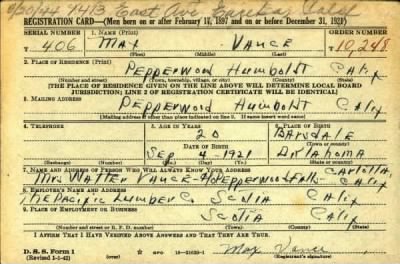 9/20/44 1413 East Ave Eureka Calif
REGISTRATION CARD—(Men born on or after February 17, 1897 and on or before December 31, 1921)
SERIAL NUMBER 1. NAME (Print) ORDER NUMBER
T 406 Max Vance T 10,248
(First) (Middle) (Last)
2. PLACE OF RESIDENCE (Print)
Pepperwood Humboldt Calif
(Number and street) (Town, township, village, or city) (County) (State)
[THE PLACE OF RESIDENCE GIVEN ON THE LINE ABOVE WILL DETERMINE LOCAL BOARD
JURISDICTION; LINE 2 OF REGISTRATION CERTIFICATE WILL BE IDENTICAL]
3. MAILING ADDRESS
Pepperwood Humboldt Calif
[Mailing address if other than place indicated on line 2. If same insert word same]
4. TELEPHONE 5. AGE IN YEARS 6. PLACE OF BIRTH
20
DATE OF BIRTH (Town or county)
Sep 4 1921 Oklahoma
(Exchange) (Number) (Mo.) (Day) (Yr.) (State or country)
7. NAME AND ADDRESS OF PERSON WHO WILL ALWAYS KNOW YOUR ADDRESS Carlotta,
Mrs Walter Vance Pepperwood Calif
8. EMPLOYER'S NAME AND ADDRESS
The Pacific Lumber Co Scotia Calif
9. PLACE OF EMPLOYMENT OR BUSINESS
Scotia Calif
(Number and street or R. F. D. number) (Town) (County) (State)
I AFFIRM THAT I HAVE VERIFIED ABOVE ANSWERS AND THAT THEY ARE TRUE.
D. S. S. Form 1
(Revised 1-1-42) GPO 16—21630-1 Max Vance